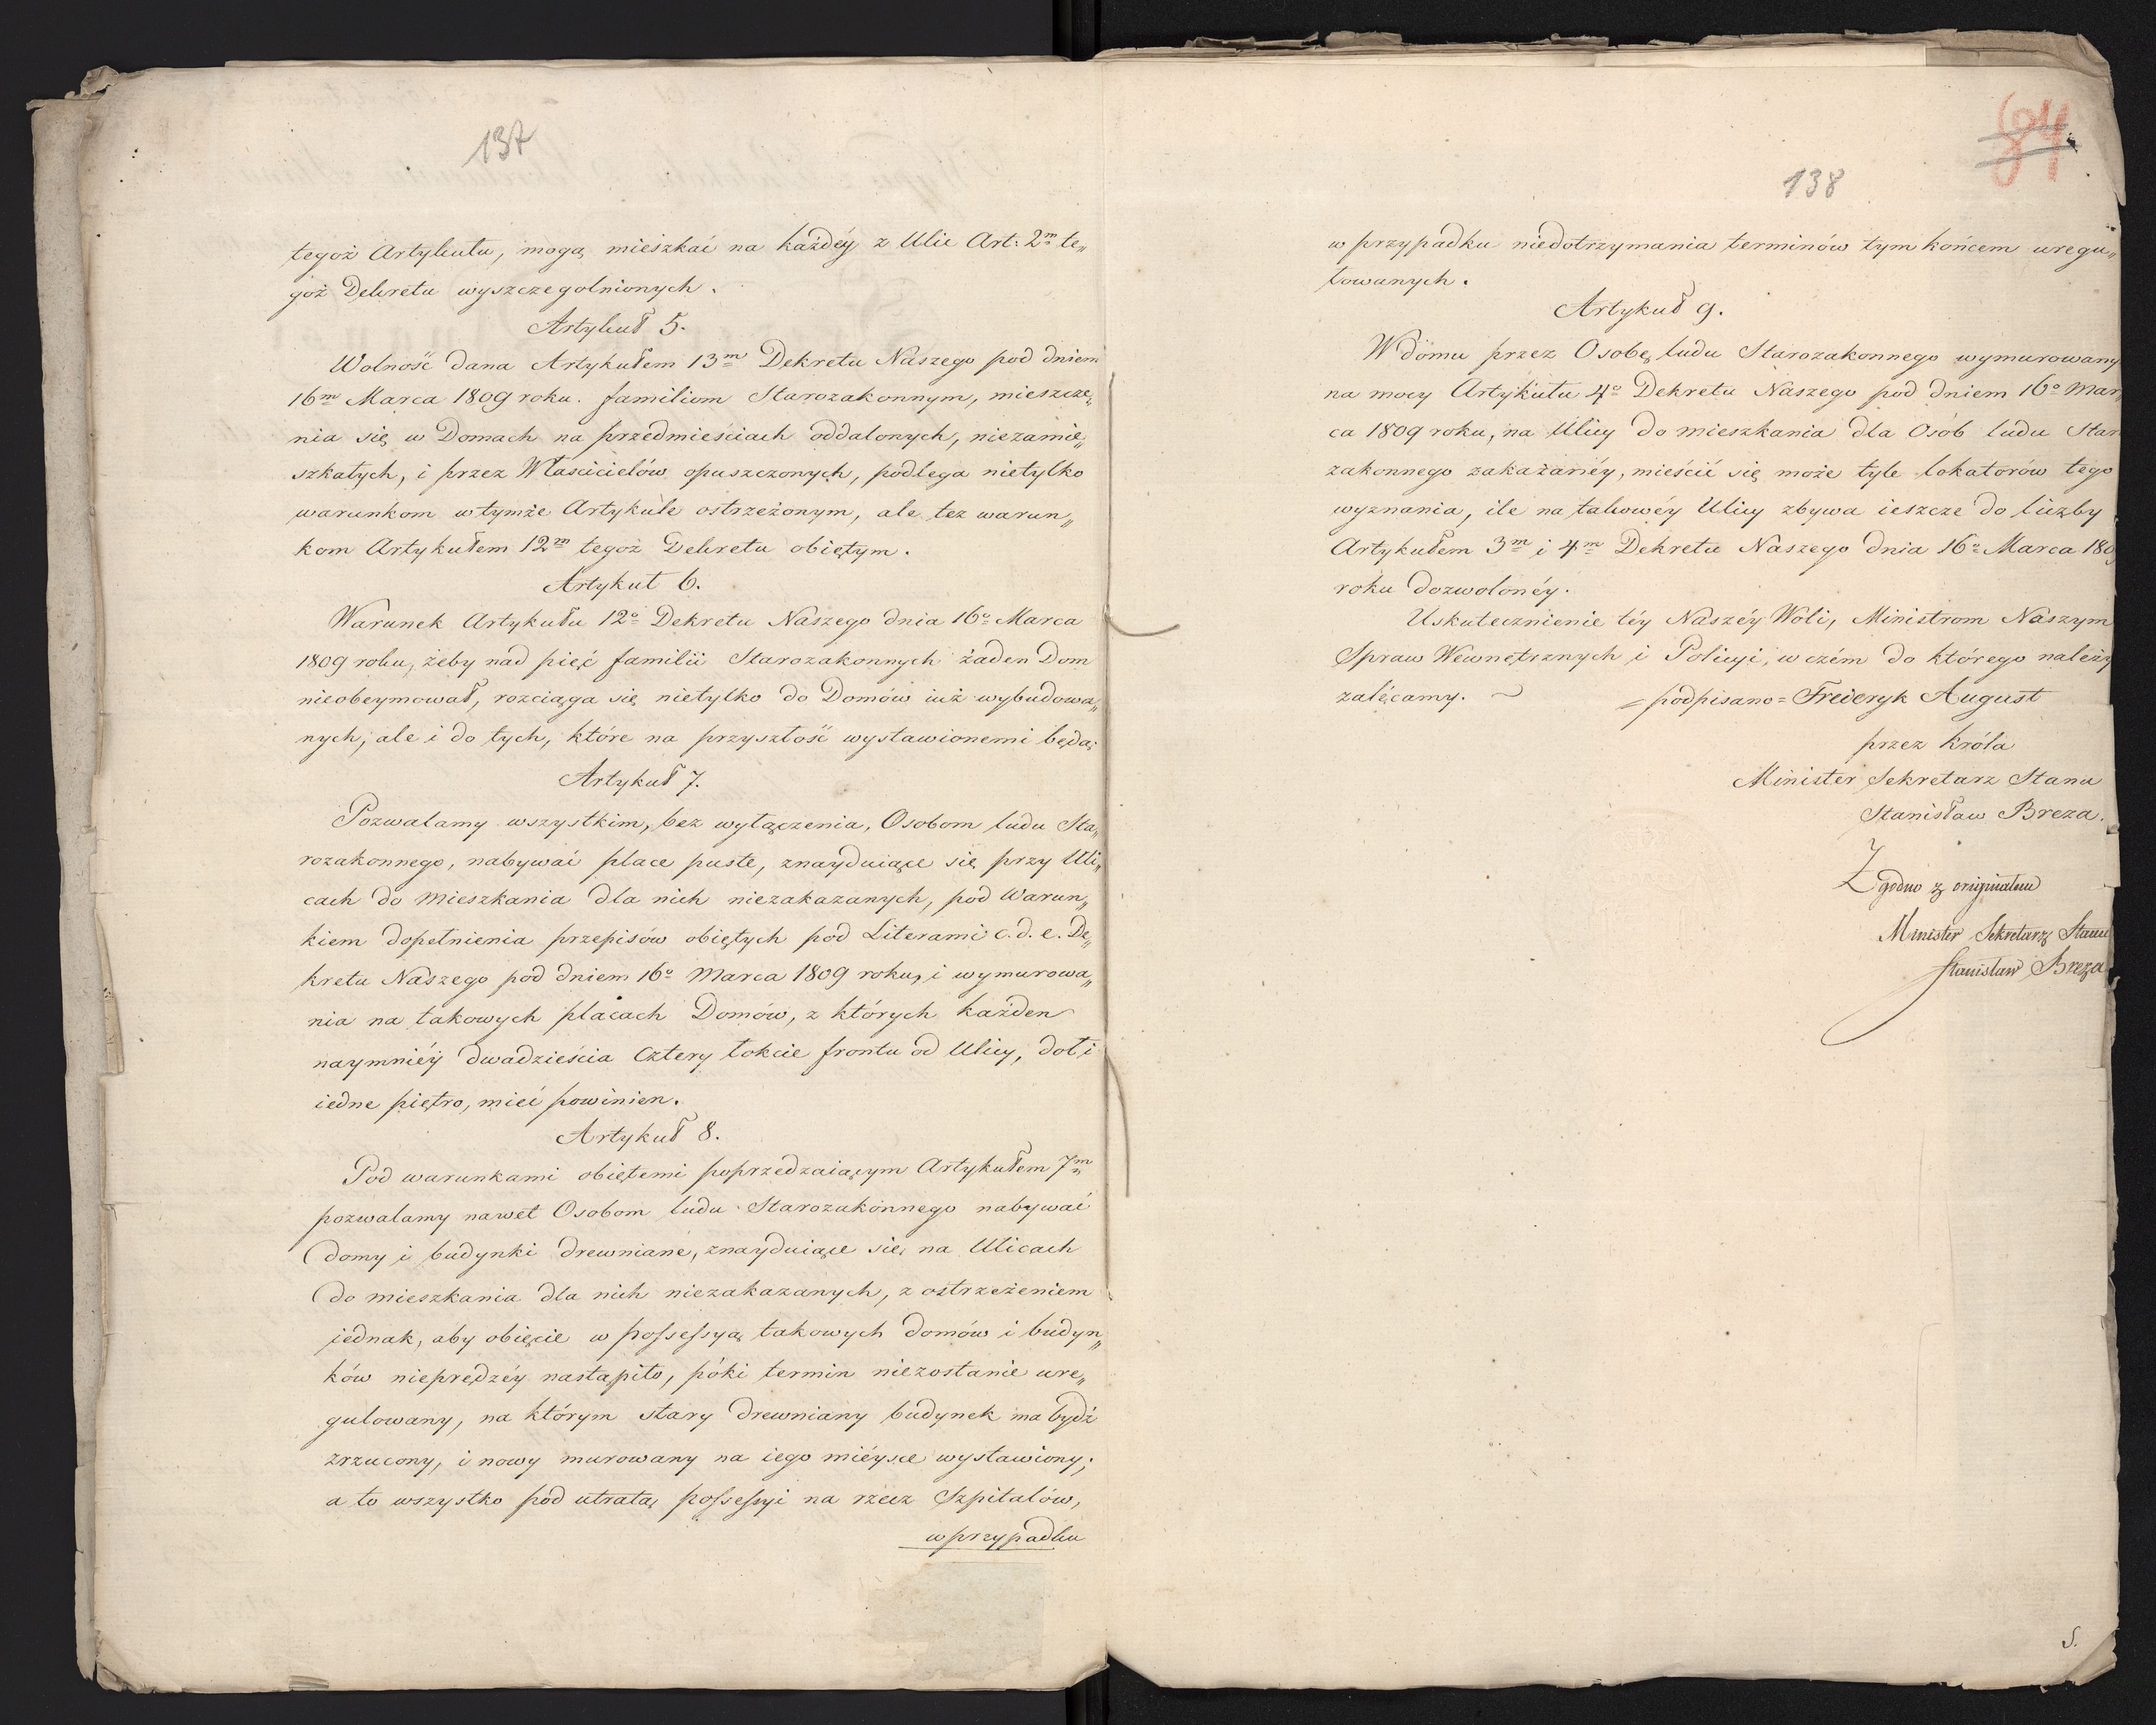 137
tegoż Artykułu, mogą mieszkać na każdéy z Ulic Art: 2m te„
goż Dekretu wyszczegolnionych.
Artykuł 5.
Wolność dana Artykułem 13m Dekretu Naszego pod dniem
16m Marca 1809 roku. familiom Starozakonnym, mieszcze„
nia się w Domach na przedmieściach oddalonych, niezamie„
szkałych, i przez Właścicielów opuszczonych, podlega nietylko
warunkom w tymże Artykule ostrzeżonym, ale tez warun„
kom Artykułem 12m tegoż Dekretu obiętym.
Artykuł 6.
Warunek Artykułu 12o Dekretu Naszego dnia 16o Marca
1809 roku, żeby nad pięć familii Starozakonnych żaden Dom
nieobeymował, rozciąga się nietylko do Domów iuż wybudowa„
nych, ale i do tych, które na przyszłość wystawionemi będą.
Artykuł 7.
Pozwalamy wszystkim, bez wyłączenia, Osobom ludu Sta„
rozakonnego, nabywać place puste, znayduiące się przy Uli„
cach do mieszkania dla nich niezakazanych, pod Warun„
kiem dopełnienia przepisów obiętych pod Literami c. d. e. De„
kretu Naszego pod dniem 16o Marca 1809 roku, i wymurowa„
nia na takowych placach Domów, z których każden
naymniéy dwadzieścia cztery łokcie frontu od Ulicy, dół i
iedne piętro, mieć powinien.
Artykuł 8.
Pod warunkami obiętemi poprzedzaiącym Artykułem 7m
pozwalamy nawet Osobom ludu Starozakonnego nabywać
domy i budynki drewniane, znayduiące się na Ulicach
do mieszkania dla nich niezakazanych, z ostrzeżeniem
iednak, aby obięcie w possessyą takowych domów i budyn„
ków nieprędzéy nastąpiło, póki termin niezostanie ure„
gulowany, na którym stary drewniany budynek ma bydź
zrzucony, i nowy murowany na iego mieysce wystawiony;
a to wszystko pod utratą possessyi na rzecz Szpitalów,
w przypadku
84
138
w przypadku niedotrzymania terminów tym końcem uregu„
lowanych.
Artykuł 9.
W domu przez Osobę ludu Starozakonnego wymurowany
na mocy Artykułu 4o Dekretu Naszego pod dniem 16o Mar„
ca 1809 roku, na Ulicy do mieszkania dla Osób ludu Star
zakonnego zakazanéy, mieścić się może tyle lokatorów tego
wyznania, ile na takowéy Ulicy zbywa ieszcze do liczby
Artykułem 3m i 4m Dekretu Naszego dnia 16o Marca 180
roku dozwolonéy.
Uskutecznienie téy Naszéy Woli, Ministrom Naszym
Spraw Wewnętrznych i Policyi, w czém do którego należy
zalecamy. = podpisano = Frideryk August
przez Króla
Minister Sekretarz Stanu
Stanisław Breza.
Zgodno z originałem
Minister Sekretarz Stanu
Stanisław Breza
S.